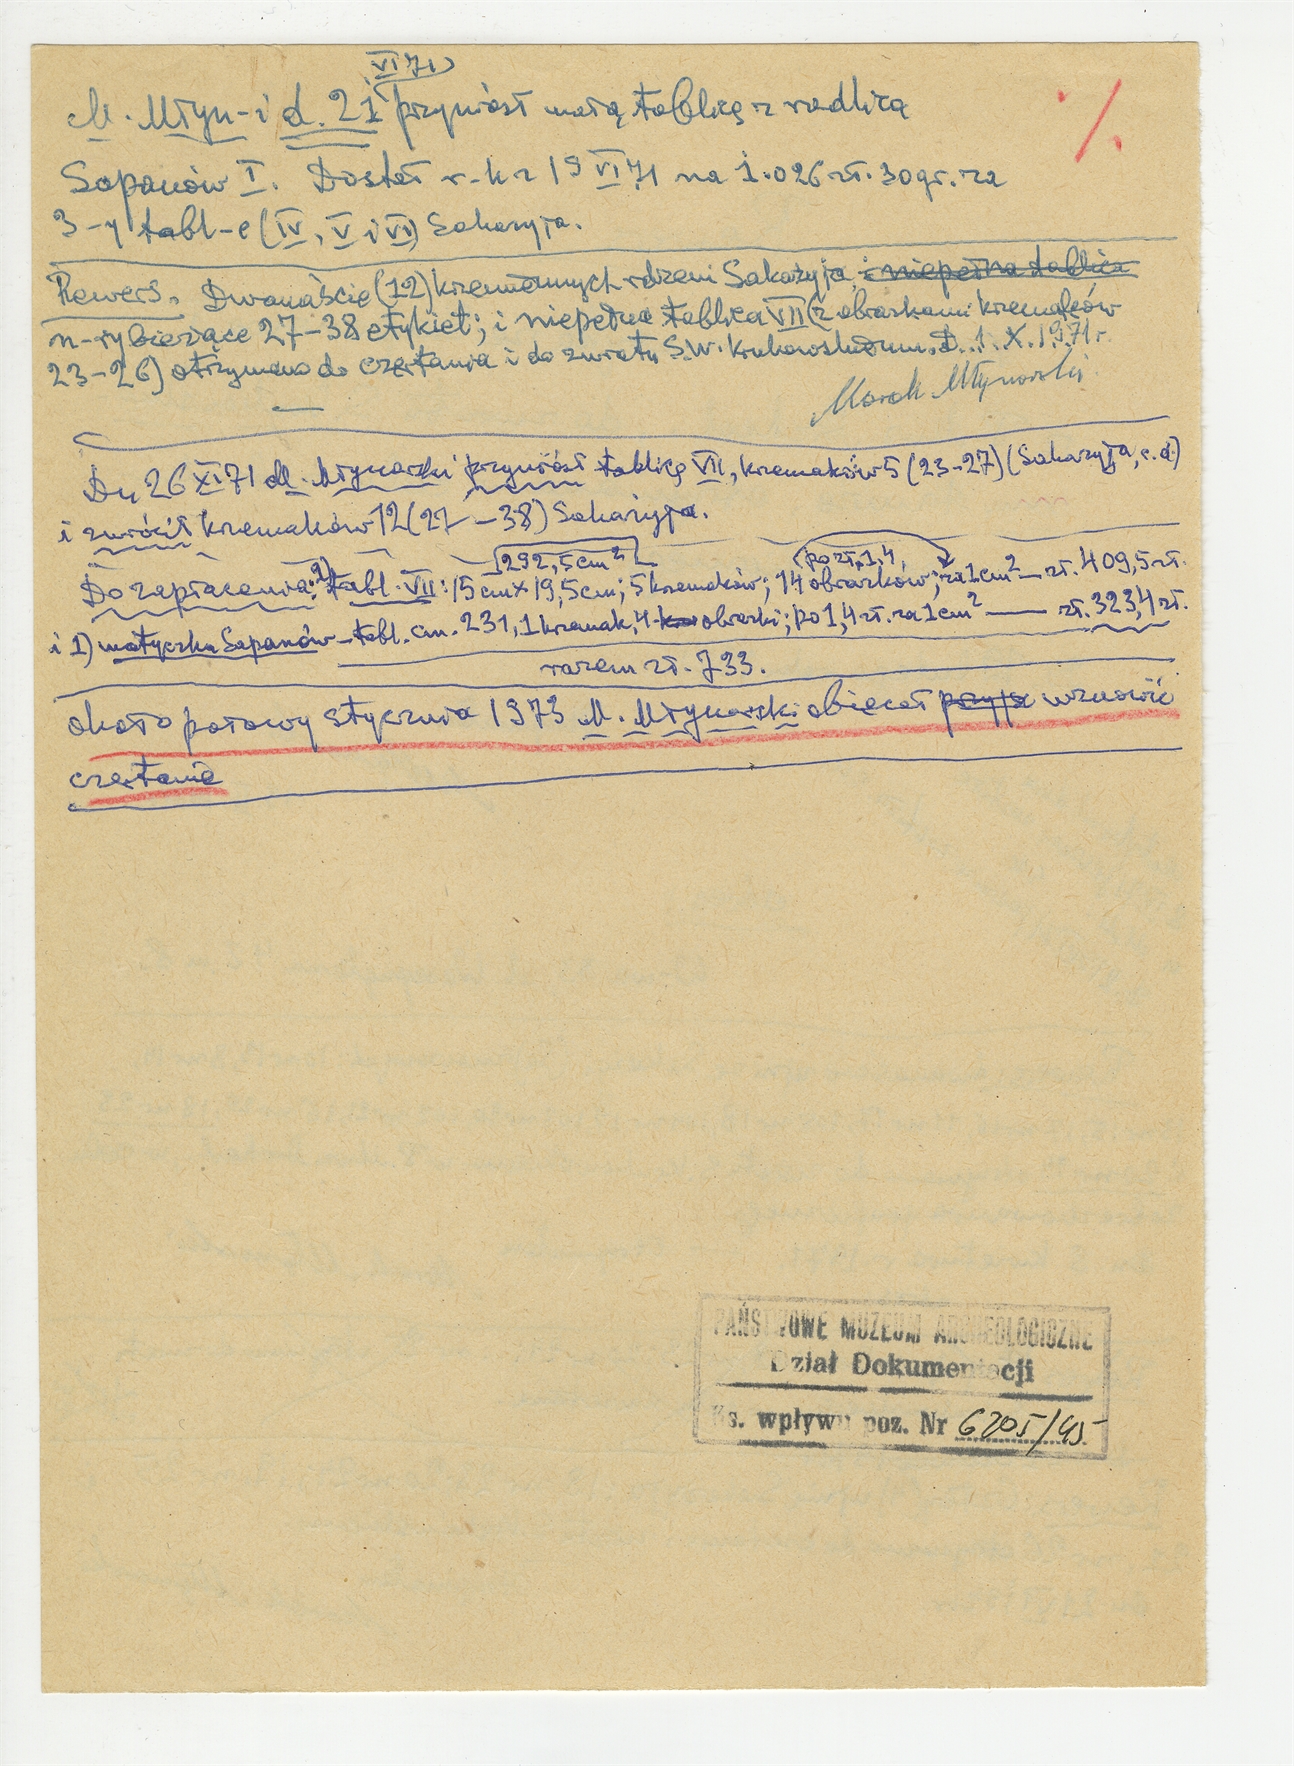 VI 71
M. Młyn-i d. 21 przyniósł małą tablicę z radlicą
Sapanów I. Dostał r-k z 19 VI 71 na 1.026 zł. 30 gr. za
3-y tabl-e (IV, V i VI) Sakaryja.
Rewers. Dwanaście (12) krzemiennych rdzeni Sakaryja, i niepełna tablica
n-ry bieżące 27–38 etykiet; i niepełna tablica VII (z obrazkami kremaków
23–26) otrzymano do czertania i do zwrotu S.W. Krukowskiemu. D. 1. X. 1971 r.
Marek Młynarski
Dn 26 XI 71 M. Młynarski przyniósł tablicę VII, kremaków 5 (23–27) (Sakaryja, c.d.)
i zwrócił kremaków 12 (27–38) Sakaryja.
292,5 cm² po zł. 1,4,
Do zapłacenia: 2) tabl. VII: 15 cm x 19,5 cm; 5 kremaków; 14 obrazków; za 1 cm² — zł. 409,5 zł.
i 1) motyczka Sapanów – tabl. cm. 231, 1 kremak, 4 obrazki; po 1,4 zł. za 1 cm² — zł. 323,4 zł.
razem zł. 733.
około połowy stycznia 1973 M. Młynarski obiecał przyjś wznowić
czertanie
PAŃSTWOWE MUZEUM ARCHEOLOGICZNE
Dział Dokumentacji
Ks. wpływu poz. Nr 6205/45